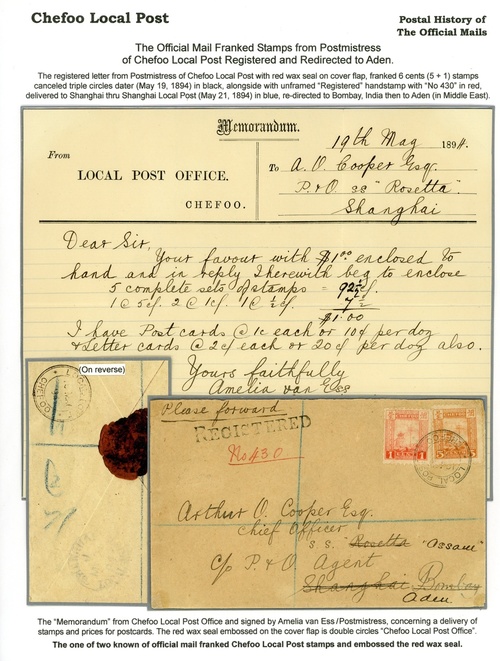 Chefoo Local Post
Postal History of
The Official Mails
The Official Mail Franked Stamps from Postmistress
of Chefoo Local Post Registered and Redirected to Aden.
The registered letter from Postmistress of Chefoo Local Post with red wax seal on cover flap, franked 6 cents (5 + 1) stamps
canceled triple circles dater (May 19, 1894) in black, alongside with unframed "Registered" handstamp with "No 430" in red,
delivered to Shanghai thru Shanghai Local Post (May 21, 1894) in blue, re-directed to Bombay, India then to Aden (in Middle East).
Memorandum.
19th May 1894.
From
LOCAL POST OFFICE.
CHEFOO.
To A. O. Cooper Esq.
P. & O ss "Rosetta".
Shanghai
Dear Sir,
Your favour with $1.00 enclosed to
hand and in reply I herewith beg to enclose
5 complete sets of stamps = 92½ cf.
1 @ 5cf. 2 @ 1cf. 1 @ ½cf. 7½
$1.00
I have Post cards @ 1c each or 10cf per doz
& Letter cards @ 2cf each or 20cf per doz also.
Yours faithfully
Amelia van Ess
(On reverse)
Please forward
REGISTERED
No 430
1 5
LOCAL POST
Arthur O. Cooper Esq.
Chief Officer
S. S. Rosetta "Ossam"
c/o P. & O. Agent
Shanghai Bombay
Aden
The "Memorandum" from Chefoo Local Post Office and signed by Amelia van Ess/Postmistress, concerning a delivery of
stamps and prices for postcards. The red wax seal embossed on the cover flap is double circles "Chefoo Local Post Office".
The one of two known of official mail franked Chefoo Local Post stamps and embossed the red wax seal.